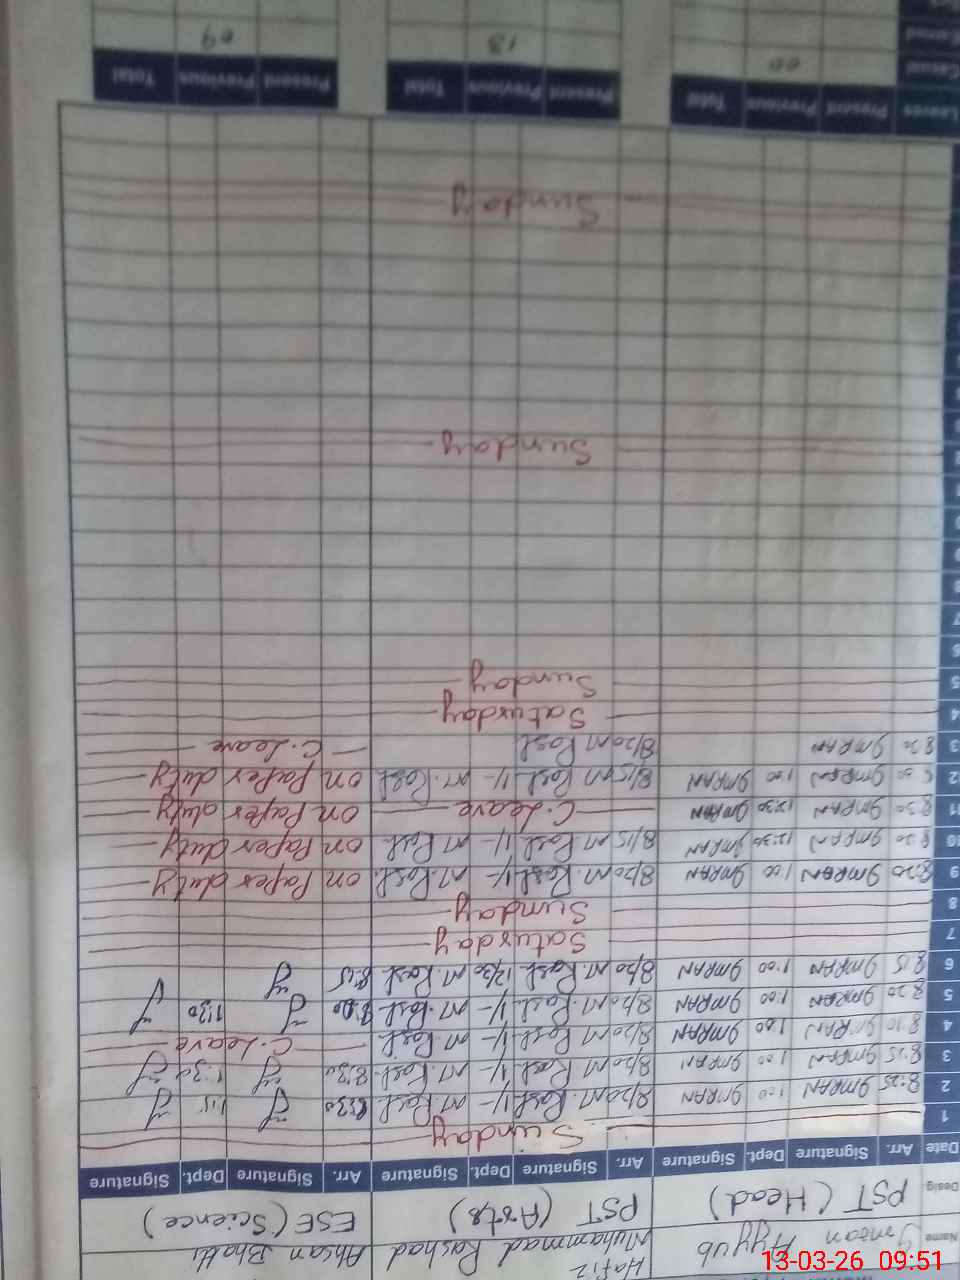 Name Imran Ayyub Hafiz Muhammad Rashad Ahsan Bhatti
Desig. PST (Head) PST (Arts) ESE (Science)
Date Arr. Signature Dept. Signature Arr. Signature Dept. Signature Arr. Signature Dept. Signature
1 Sunday
2 8:25 IMRAN 1:00 IMRAN 8/20 M. Rash 1/- M. Rash 8:30 1:15
3 8:25 IMRAN 1:00 IMRAN 8/20 M. Rash 1/- M. Rash 8:30 1:30
4 8:10 IMRAN 1:00 IMRAN 8/20 M. Rash 1/- M. Rash C. Leave
5 8:20 IMRAN 1:00 IMRAN 8/20 M. Rash 1/- M. Rash 8:20 1:30
6 8:15 IMRAN 1:00 IMRAN 8/20 M. Rash 12/30 M. Rash 8:15
7 Saturday
8 Sunday
9 8:20 IMRAN 1:00 IMRAN 8/20 M. Rash 1/- M. Rash on Paper duty
10 8:20 IMRAN 12:30 IMRAN 8/15 M. Rash 1/- M. Rash on Paper duty
11 8:30 IMRAN 12:30 IMRAN C. Leave on Paper duty
12 IMRAN 1:00 IMRAN 8/15 M Rash 1/- M. Rash on Paper duty
13 8:20 IMRAN 8/20 M Rash C. Leave
14 Saturday
15 Sunday
Sunday
Sunday
Leaves Present Previous Total Present Previous Total Present Previous Total
Casual 00 13 09
Earned
13-03-26 09:51